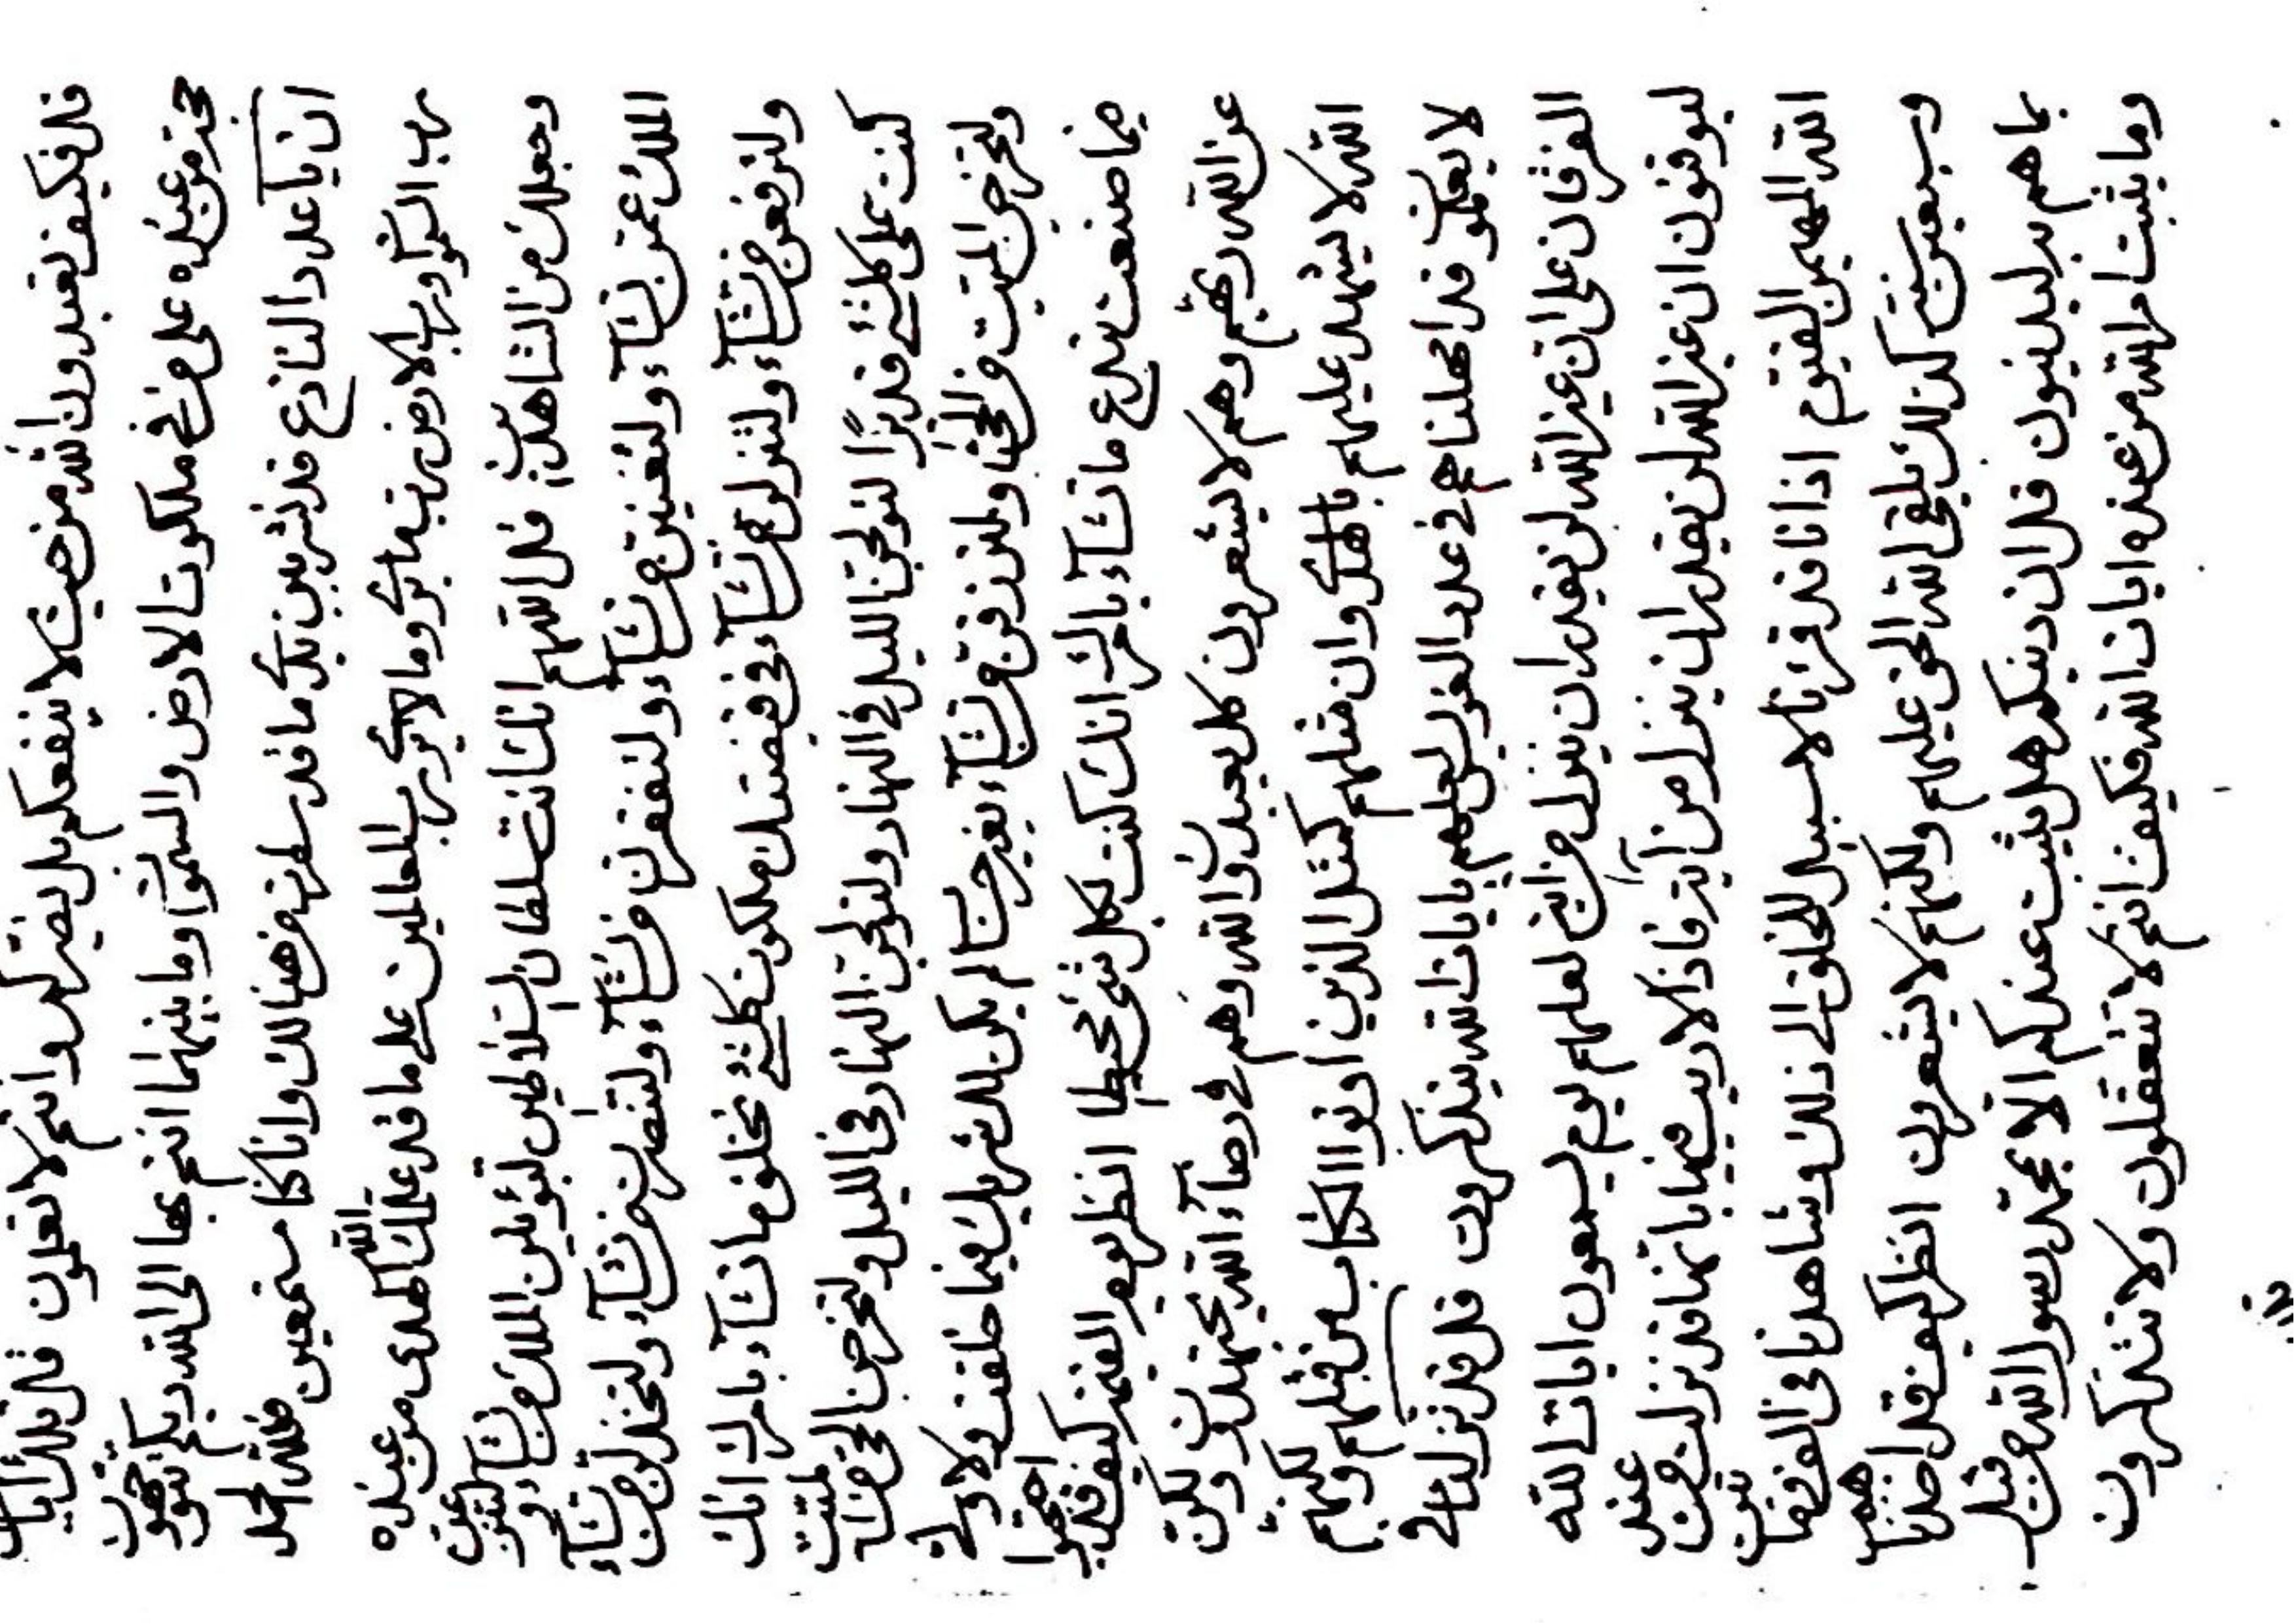 قل فكيف تعبدون الله من حيث لا ينفعكم بل يضركم وانتم لا تعلمون قل تلك آيات
حجة من عنده على من في ملكوت الارض والسموات وما بينهما انتم بها الى الله ربكم تتوجهون
ان يا عدد قد بكل ما قد سئلت من هنالك وانا كنا سمعين فلله الحمد
رب السموات ورب الارض رب ما يرى وما لا يرى رب العالمين على ما قد علمك الله الهدى من عنده
وجعلك من الشاهدين قل اللهم انك انت سلطان السلاطين لتؤتين الملك من تشاء ولتنزعن
الملك عمن تشاء ولتغنين من تشآء ولتفقرن من تشآء ولتنصرن من تشآء ولتخذلن من تشآء
ولترفعن من تشآء ولتنزلن من تشآء في قبضتك ملكوت كلشيء تخلق ما تشآء بامرك انك
كنت على كلشيء قديرًا لتولجن الليل في النهار ولتولجن النهار في الليل ولتخرجن الحي من الميت
ولتخرجن الميت من الحي ولترزقن من تشآء بغير حساب لم يكن لك شريك فيما خلقت ولا ولي
فيما صنعت تبدع ما تشآء بامرك انك كنت بكل شيء محيطا انظر بعين اليقين كيف قد احتجبوا
عن الله ربهم وهم لا يشعرون كل يعبدون الله وهم في رضآء الله يجتهدون ولكن
الله لا يشهد عليهم بالهدى وان مثلهم كمثل الذين اوتوا الكتاب من قبلهم ولكنهم
لا يعلمون قد امهلناهم في عدد لعلهم بايات الله يتذكرون قل قد نزلنا في
الفرقان على ان غير الله لن يقدر ان ينزل من آية لعلهم يوم يسمعون ايات الله
ليوقنون ان غير الله لن يقدر ان ينزل من آية فاذا لا ريب فيها بانها قد نزلت من عند
الله المهيمن القيوم اذا انا قد لا سبيل للخلق الى ذلك وشاهدنا في
وسبعين سنة كذلك يلقى الله الحق عليهم ولكنهم لا يشعرون انظر كيف قد اضلناهم
بما هم به ليدينون قل ان دينكم هل يثبت عندكم الا بمحمد رسول الله من قبل
وما يثبت امر الله من عنده ايات الله فكيف انتم لا تتعقلون ولا تتذكرون